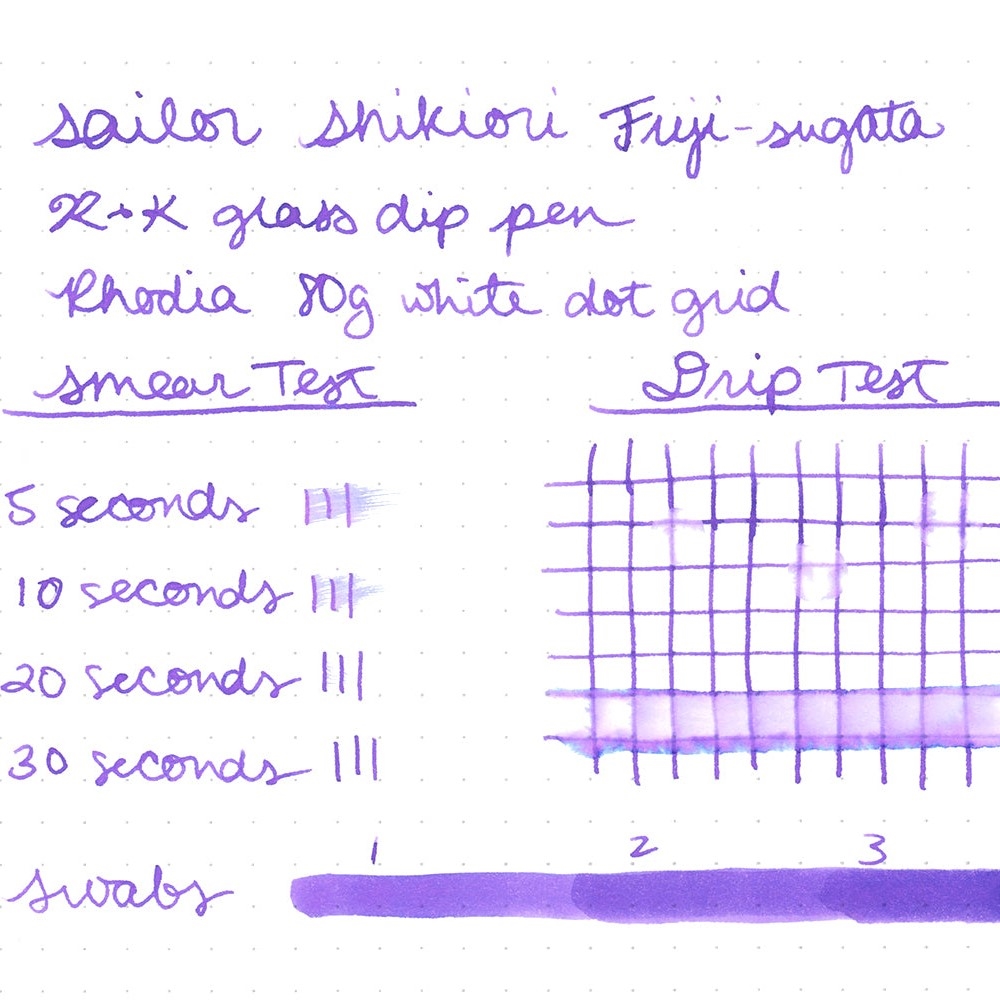 sailor shikiori Fuji-sugata
R+K glass dip pen
Rhodia 80g white dot grid
smear Test
Drip Test
5 seconds
10 seconds
20 seconds
30 seconds
1 2 3
swabs